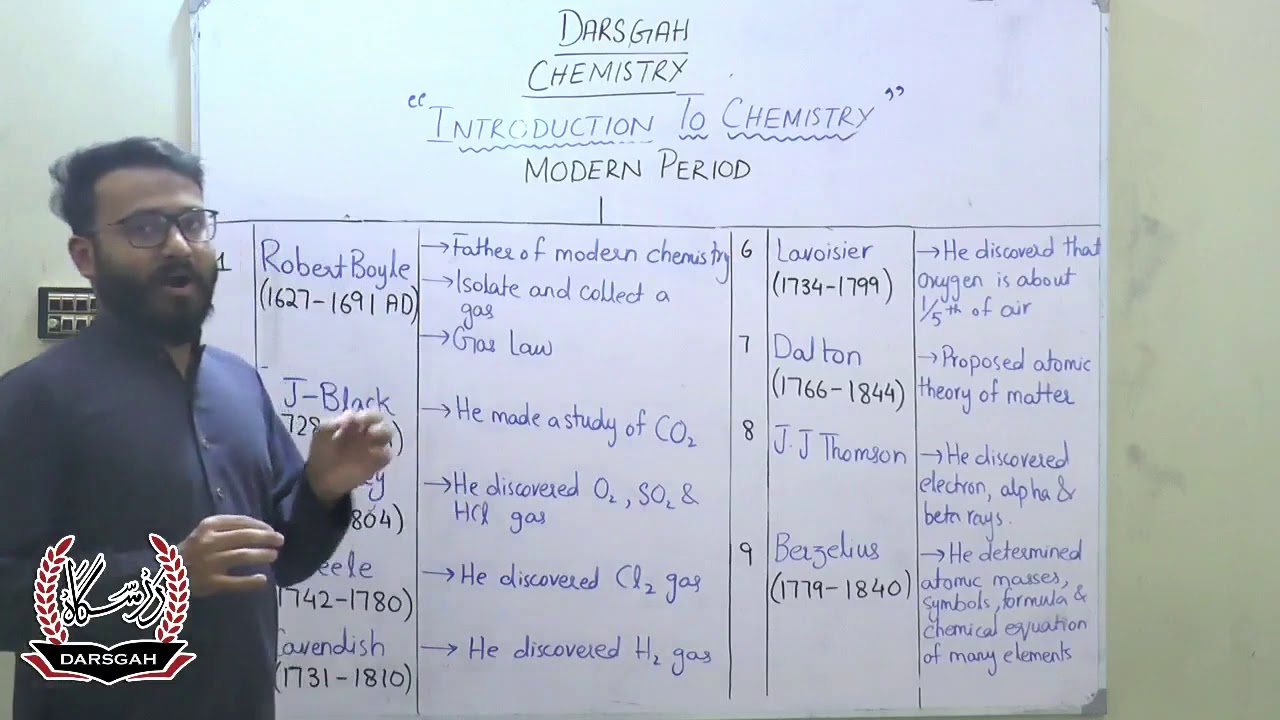 DARSGAH
CHEMISTRY
“INTRODUCTION TO CHEMISTRY”
MODERN PERIOD
1
Robert Boyle
(1627-1691 AD)
→Father of modern chemistry
→Isolate and collect a
gas
→Gas Law
J-Black
728
→He made a study of CO₂
ey
804)
→He discovered O₂, SO₂ &
HCl gas
eele
1742-1780)
→He discovered Cl₂ gas
Cavendish
(1731-1810)
→ He discovered H₂ gas
6
Lavoisier
(1734-1799)
→He discoverd that
oxygen is about
1/5th of air
7
Dalton
(1766-1844)
→Proposed atomic
theory of matter
8
J.J Thomson
→He discovered
electron, alpha &
beta rays.
9
Berzelius
(1779-1840)
→He determined
atomic masses,
symbols, formula &
chemical equation
of many elements
درسگاہ
DARSGAH